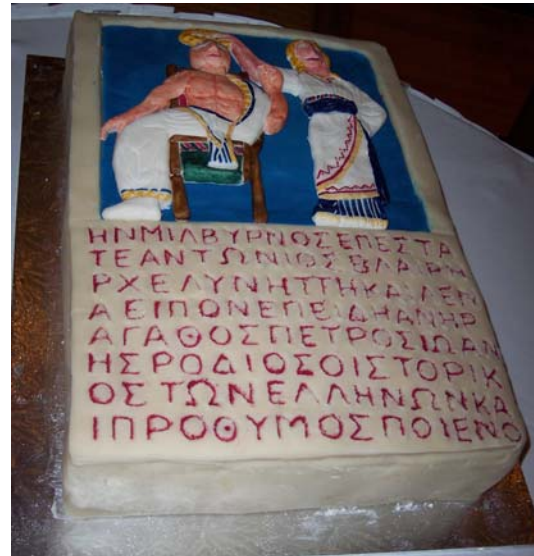 ΗΝΜΙΛΒΥΡΝΟΣΕΠΕΣΤΑ
ΤΕΑΝΤΩΝΙΟΣΒΛΑΙΡΗ
ΡΧΕΛΥΝΗΤΤΗΚΑΙ
ΑΕΙΠΟΝΕΠΕΙΔΗΑΝΗΡ
ΑΓΑΘΟΣΠΕΤΡΟΣΙΩΑΝ
ΗΣΡΟΔΙΟΣΟΙΣΤΟΡΙΚ
ΟΣΤΩΝΕΛΛΗΝΩΝΚΑ
ΙΠΡΟΘΥΜΟΣΠΟΙΕΝΟ